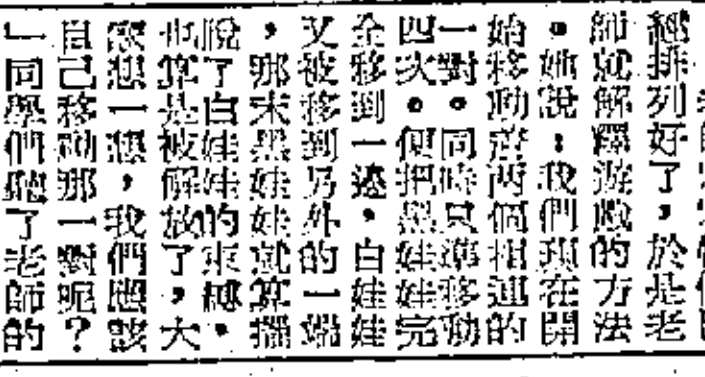 經排列好了，於是老
師就解釋遊戲的方法
。她說：我們現在開
始移動兩個相連的
一對。同時只準移動
四次。便把黑娃娃完
全移到一邊，白娃娃
又被移到另外的一端
，那末黑娃娃就算擺
脫了白娃娃的束縛，
也算是被解放了，大
家想一想，我們應該
自己移動那一對呢？
」同學們聽了老師的